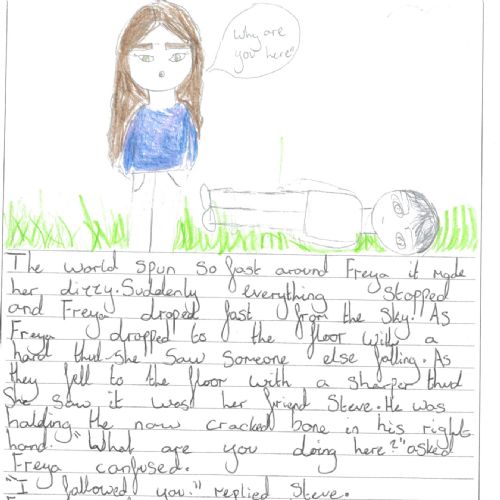 Why are
you here?
The world spun so fast around Freya it made
her dizzy. Suddenly everything stopped
and Freya droped fast from the sky! As
Freya dropped to the floor with a
hard thud she saw someone else falling. As
they fell to the floor with a sharper thud
she saw it was her friend Steve. He was
holding the now cracked bone in his right
hand. "What are you doing here?" asked
Freya confused.
"I followed you." replied Steve.